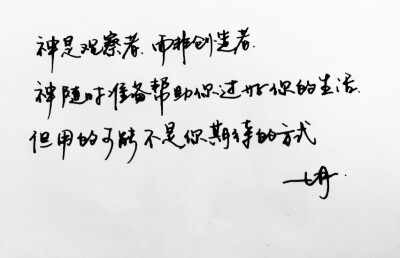 神是观察者.而非创造者.
神随时准备帮助你过好你的生活.
但用的可能不是你期待的方式